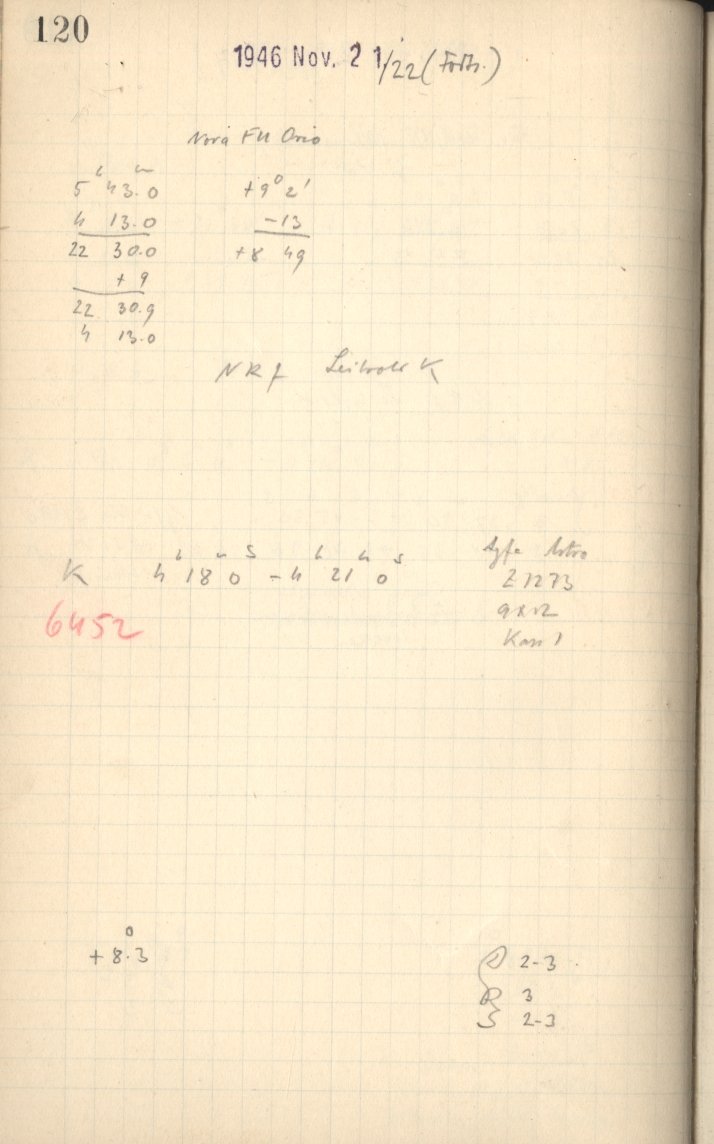 120
1946 Nov. 21/22 (Forts.)
Nova FU Orio
5 h 43 m .0 +9° 2'
4 13.0 -13
22 30.0 +8 49
+ 9
22 30.9
4 13.0
NRf Leitrohr K
K 4 h 18 m 0 s - 4 h 21 m 0 s Agfa Astro
6452 Z1273
9x12
Kass 1
+8°.3
D 2-3
R 3
S 2-3